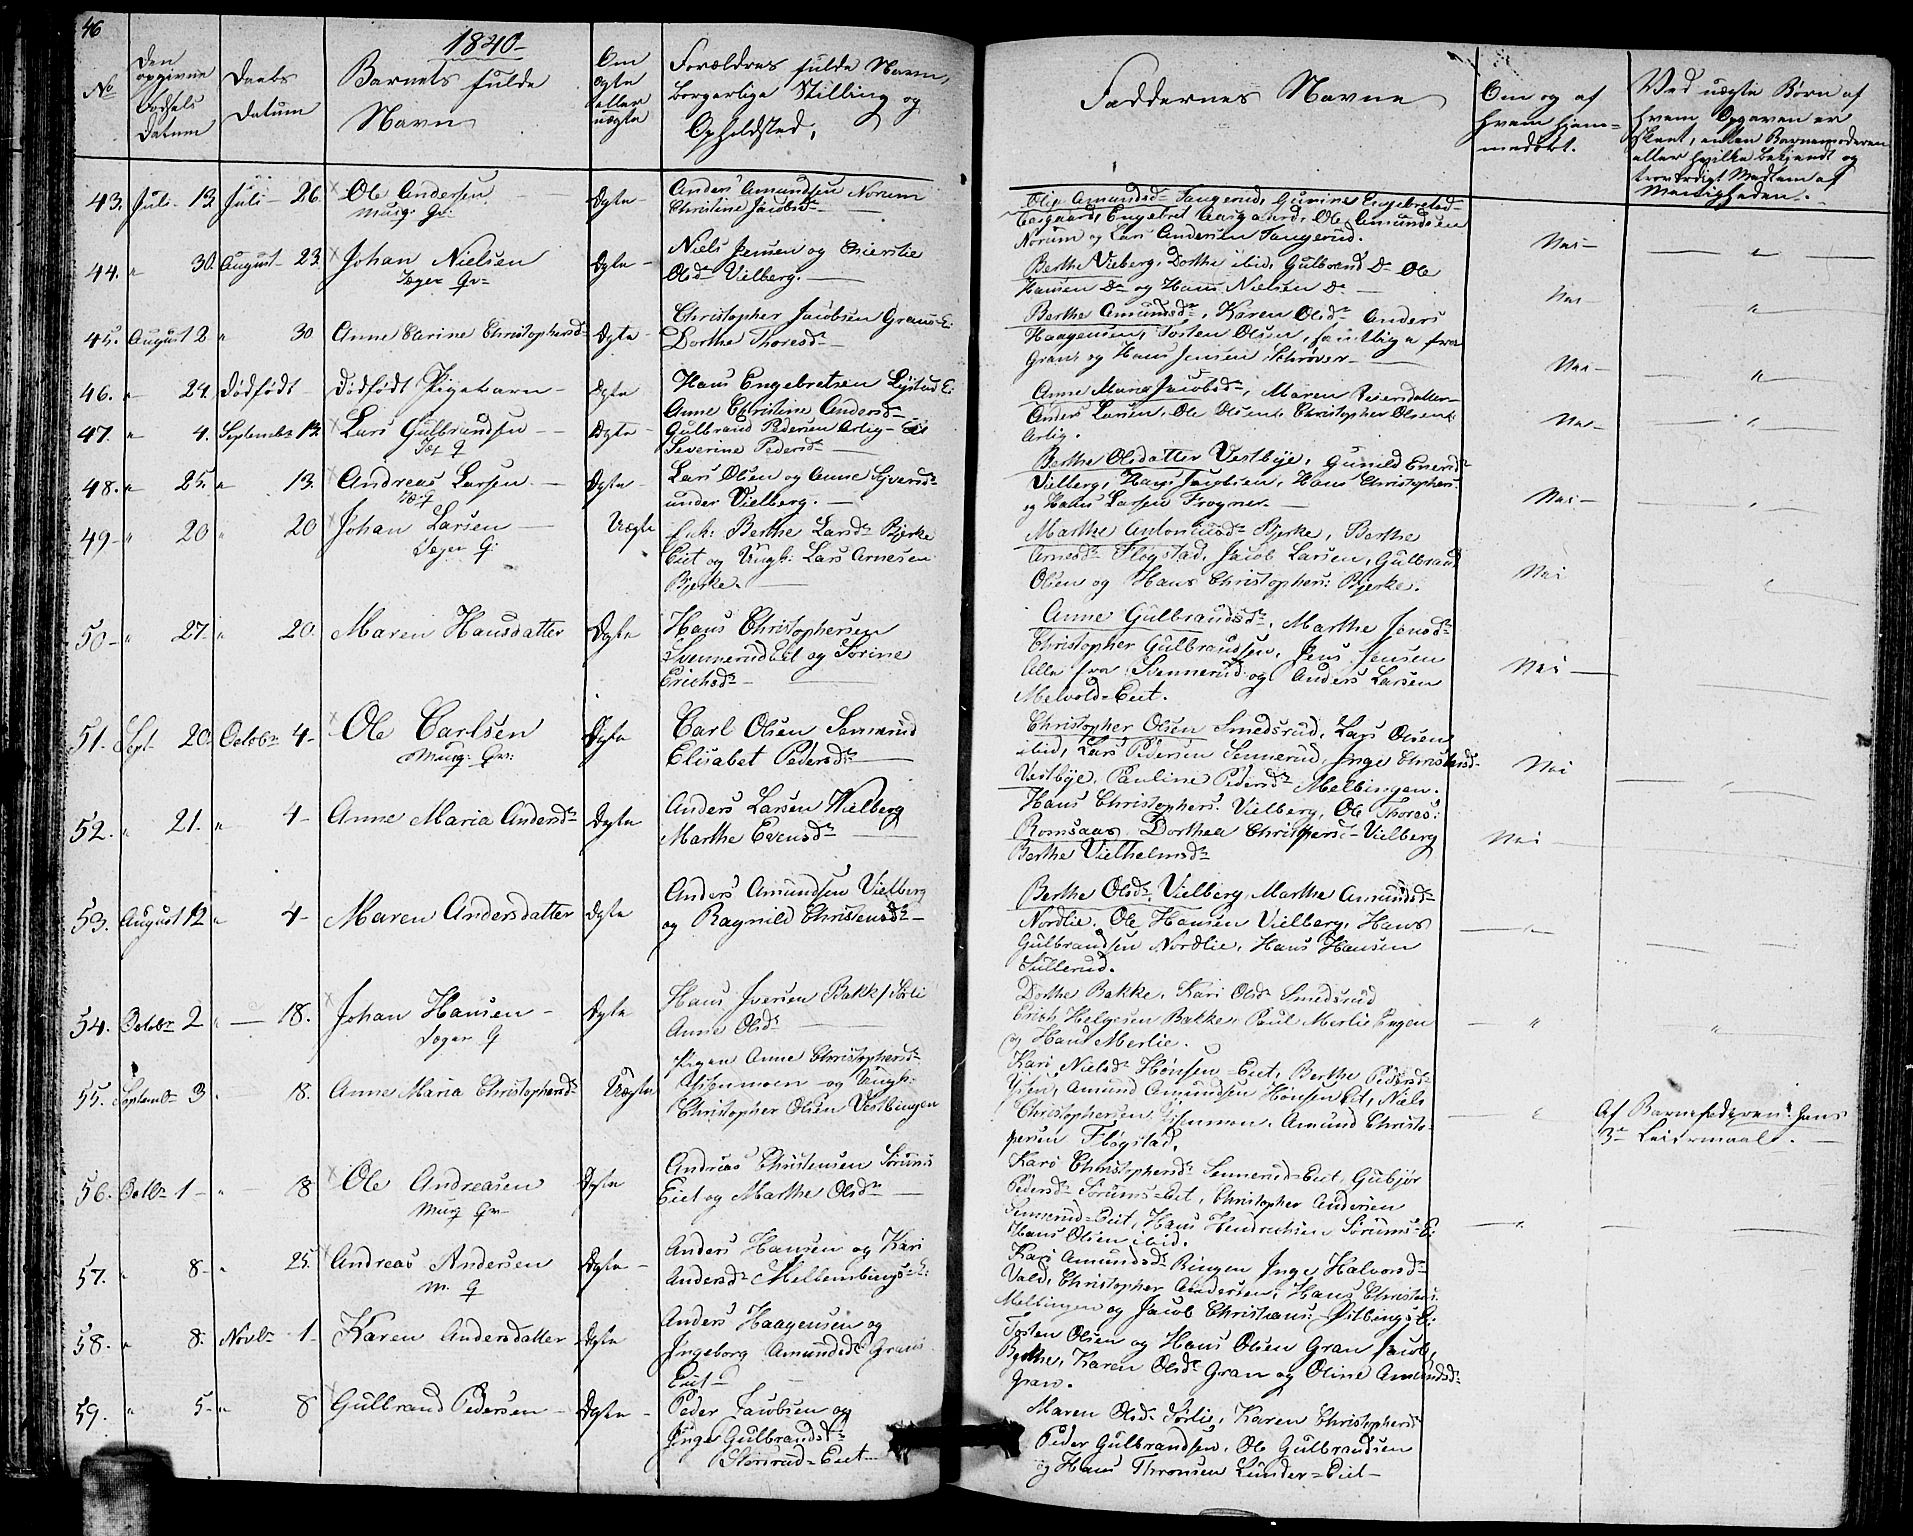 46
1840
No
Den opgivne Fødsels Datum
Daabs Datum
Barnets fulde Navn
Om ægte eller uægte
Forældres fulde Navn, borgerlige Stilling og Opholdsted,
Faddernes Navne
Om og af hvem hjemmedøbt.
Ved uægte Børn af hvem Opgaven er skeet, enten Barnemoderen eller hvilke bekjendt og troværdigt Medlem af Menigheden.
43. Juli 13 Juli 26. Ole Andersen Ægte
Anders Amundsen Norum
Christine Jacobsd
Amundsd Tangerud, Engebretsd
Aasgaard, Engebret Aasgaard, Ole Amundsen
Norum og Lars Andersen Tangerud.
Nei
44. " 30. August 23. Johan Nielsen
Jæger Gr
Ægte
Niels Jensen og Chierstie
Olsd Vielberg.
Berthe Vieberg, Dorthe ibid, Gulbrand Do Ole
Hansen Do og Hans Nielsen Do
Nei
45. August 2 " 30 Anne Karine Christophersd Ægte
Christopher Jacobsen Grans E:
Dorthe Thoresd
Berthe Amundsd, Karen Olsd Anders
Haagensen, Tosten Olsen, samtlige fra
Gran, og Hans Jensen Schrøver
Nei
46. " 24. Dødfødt Dødfødt Pigebarn Ægte
Hans Engebretsen Lystad E:
Anne Christine Andersd
47. " 4. Septembr 13. Lars Gulbrandsen Ægte
Gulbrand Pedersen Arlig
Severine Pedersd
Anne Marie Jacobsd, Maren Reiersdatter
Anders Larsen, Ole Olsen, Christopher Olsen
Arlig.
Nei
48. " 25. " 13. Andreas Larsen Ægte
Lars Olsen og Anne Syversd
under Vielberg.
Berthe Olsdatter Vestbye, Gunild Enersd
Vielberg, Hans Jacobsen, Hans Christophers:
og Hans Larsen Frogner
Nei
49 " 20 " 20 Johan Larsen
Jæger G:
Uægte
Berthe Larsd Bjerke
Eiet og Ungk: Lars Arnesen
Bjerke.
Marthe Antonisd Bjerke, Berthe
Arnesd Flogstad, Jacob Larsen, Gulbrand
Olsen og Hans Christophers: Bjerke.
Nei
50 " 27. " 20. Maren Hansdatter Ægte
Hans Christophersen
Svennerud Eiet og Sorine
Erichsd
Anne Gulbrandsd, Marthe Jensd
Christopher Gulbrandsen, Jens Jensen
Alle fra Svennerud og Anders Larsen
Melvold Eiet.
Nei
51. Sept 20. Octobr 4 Ole Carlsen Ægte
Carl Olsen Sennerud
Elisabet Pedersd
Christopher Olsen Smedsrud, Lars Olsen
ibid, Lars Pedersen Sennerud, Inge Christensd
Vestbye, Pauline Pedersd Melbingen.
Nei
52. " 21. " 4 Anne Maria Andersd Ægte
Anders Larsen Vielberg
Marthe Evensd
Hans Christophers: Vielberg, Ole Thores:
Romsaas, Dorthea Christophersd Vielberg
Berthe Vielhelmsd
Nei
53. August 12 " 4 Maren Andersdatter Ægte
Anders Amundsen Vielberg
og Ragnild Christensd
Berthe Olsd Vielberg, Marthe Amundsd
Nordlie, Ole Hansen Vielberg, Hans
Gulbrandsen Nordlie, Hans Hansen
Sullerud.
54. Octobr 2 " 18. Johan Hansen
Jæger G
Ægte
Hans Iversen Bakke
Anne Olsd
Dorthe Bakke, Kari Olsd Smedsrud
Erich Helgesen Bakke, Paul Merlie Engen
og Hans Merlie.
55. Septembr 3 " 18. Anne Maria Christophersd Uægte
Pigen Anne Christophersd
og Ungk:
Christopher Olsen Vestbingen
Kari Nielsd Hønsen Eiet, Berthe Pedersd
Amund Amundsen Hønsen Eiet, Niels
Christophersen Amund Christo-
phersen Flogstad.
Af Barnefaderen. Hans
3e Leiermaal.
56. Octbr 1 " 18 Ole Andreasen Ægte
Andreas Christensen Sørums
Eiet og Marthe Olsd
Kari Christophersd Sennerud Eiet, Gubjør
Pedersd Sørums Eiet, Christopher Andersen
Sennerud Eiet, Hans Hendrichsen Sørums E:
Hans Olsen ibid.
57. " 8 " 25. Andreas Andersen
M. G
Ægte
Anders Hansen og Kari
Andersd Mellembings E:
Kari Amundsd Bingen Inge Halvorsd
Vold, Christopher Andersen, Hans Christens:
Melbingen og Jacob Christians: Østbings E:
58. " 8. Novbr 1 Karen Andersdatter Ægte
Anders Haagensen og
Ingeborg Amundsd Grans
Eiet
Tosten Olsen og Hans Olsen Gran, Jacob
Berthe, Karen Olsd Gran og Oline Amundsd
Gran.
59. " 5 " 8 Gulbrand Pedersen Ægte
Peder Jacobsen og
Inge Gulbrandsd
Eiet
Maren Olsd Sørlie, Karen Christophersd
Peder Gulbrandsen, Ole Gulbrandsen
og Hans Thronsen Lunder Eiet